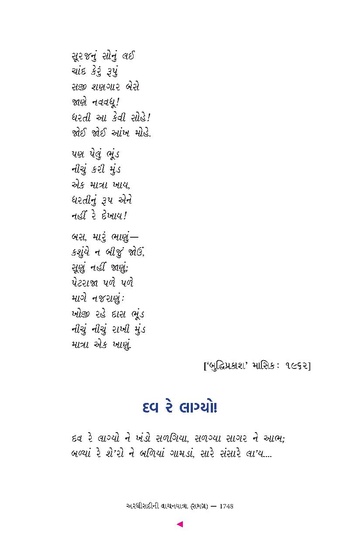 સૂરજનું સોનું લઈ
ચાંદ કેરું રૂપું
સજી શણગાર બેસે
જાણે નવવધૂ!
ધરતી આ કેવી સોહે!
જોઈ જોઈ આંખ મોહે.
પણ પેલું ભૂંડ
નીચું કરી મુંડ
એક માત્રા ખાય,
ધરતીનું રૂપ એને
નહીં રે દેખાય!
બસ, મારું ભાણું—
કશુંયે ન બીજું જોઉં,
સૂણું નહીં જાણું;
પેટરાજા પળે પળે
માગે નજરાણું:
ખોજી રહે દાસ ભૂંડ
નીચું નીચું રાખી મુંડ
માત્રા એક ખાણું.
['બુદ્ધિપ્રકાશ' માસિક : ૧૯૬૨]
દવ રે લાગ્યો!
દવ રે લાગ્યો ને ખંડો સળગિયા, સળગ્યા સાગર ને આભ;
બળ્યાં રે શે'રો ને બળિયાં ગામડાં, સારે સંસારે લા'ય....
અરધીસદીની વાચનયાત્રા (સમગ્ર) — 1748